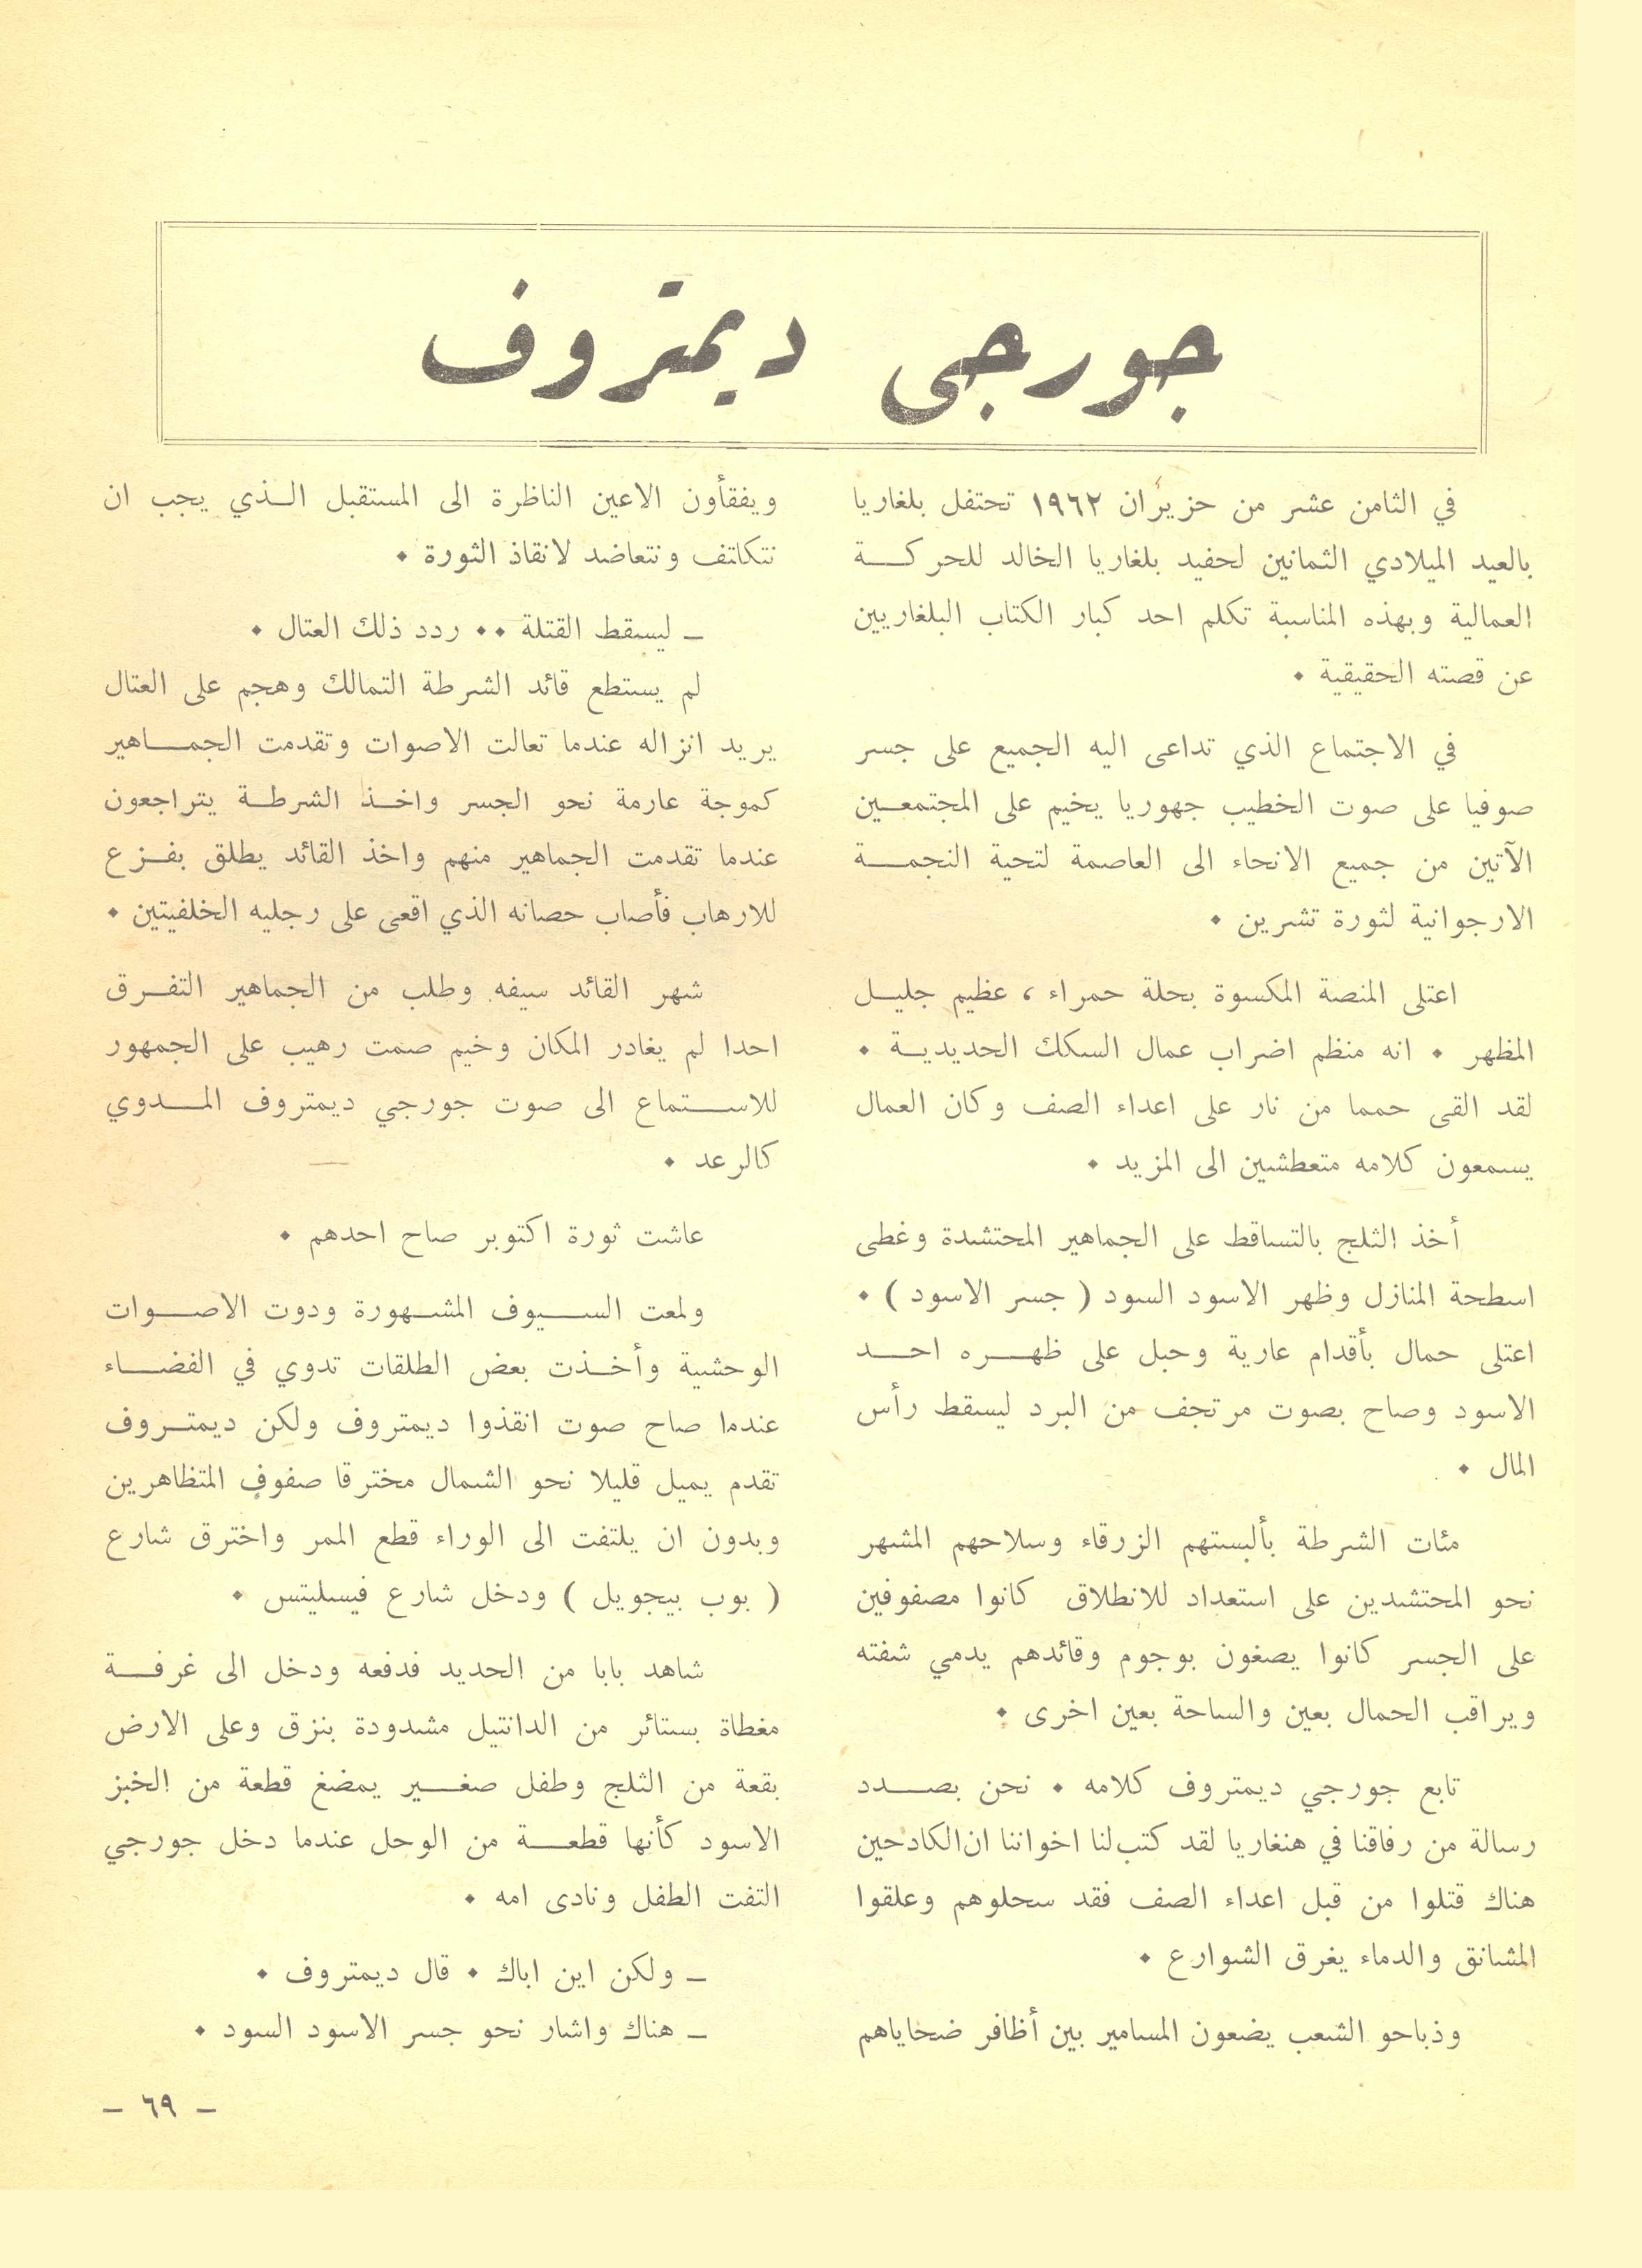 جورجي ديمتروف
في الثامن عشر من حزيران ١٩٦٢ تحتفل بلغاريا
بالعيد الميلادي الثمانين لحفيد بلغاريا الخالد للحركة
العمالية وبهذه المناسبة تكلم احد كبار الكتاب البلغاريين
عن قصته الحقيقية ٠
في الاجتماع الذي تداعى اليه الجميع على جسر
صوفيا على صوت الخطيب جهوريا يخيم على المجتمعين
الآتين من جميع الانحاء الى العاصمة لتحية النجمة
الارجوانية لثورة تشرين ٠
اعتلى المنصة المكسوة بحلة حمراء ، عظيم جليل
المظهر ٠ انه منظم اضراب عمال السكك الحديدية ٠
لقد القى حمما من نار على اعداء الصف وكان العمال
يسمعون كلامه متعطشين الى المزيد ٠
أخذ الثلج بالتساقط على الجماهير المحتشدة وغطى
اسطحة المنازل وظهر الاسود السود ( جسر الاسود ) ٠
اعتلى حمال بأقدام عارية وحبل على ظهره احد
الاسود وصاح بصوت مرتجف من البرد ليسقط رأس
المال ٠
مئات الشرطة بألبستهم الزرقاء وسلاحهم المشهر
نحو المحتشدين على استعداد للانطلاق كانوا مصفوفين
على الجسر كانوا يصغون بوجوم وقائدهم يدمي شفته
ويراقب الحمال بعين والساحة بعين اخرى ٠
تابع جورجي ديمتروف كلامه ٠ نحن بصدد
رسالة من رفاقنا في هنغاريا لقد كتب لنا اخواننا ان الكادحين
هناك قتلوا من قبل اعداء الصف فقد سحلوهم وعلقوا
المشانق والدماء يغرق الشوارع ٠
وذباحو الشعب يضعون المسامير بين أظافر ضحاياهم
ويفقأون الاعين الناظرة الى المستقبل الذي يجب ان
نتكاتف ونتعاضد لانقاذ الثورة ٠
ـ ليسقط القتلة ٠٠ ردد ذلك العتال ٠
لم يستطع قائد الشرطة التمالك وهجم على العتال
يريد انزاله عندما تعالت الاصوات وتقدمت الجماهير
كموجة عارمة نحو الجسر واخذ الشرطة يتراجعون
عندما تقدمت الجماهير منهم واخذ القائد يطلق بفزع
للارهاب فأصاب حصانه الذي اقعى على رجليه الخلفيتين ٠
شهر القائد سيفه وطلب من الجماهير التفرق
احدا لم يغادر المكان وخيم صمت رهيب على الجمهور
للاستماع الى صوت جورجي ديمتروف المدوي
كالرعد ٠
عاشت ثورة اكتوبر صاح احدهم ٠
ولمعت السيوف المشهورة ودوت الاصوات
الوحشية وأخذت بعض الطلقات تدوي في الفضاء
عندما صاح صوت انقذوا ديمتروف ولكن ديمتروف
تقدم يميل قليلا نحو الشمال مخترقا صفوف المتظاهرين
وبدون ان يلتفت الى الوراء قطع الممر واخترق شارع
( بوب بيجويل ) ودخل شارع فيسليتس ٠
شاهد بابا من الحديد فدفعه ودخل الى غرفة
مغطاة بستائر من الدانتيل مشدودة بنزق وعلى الارض
بقعة من الثلج وطفل صغير يمضغ قطعة من الخبز
الاسود كأنها قطعة من الوحل عندما دخل جورجي
التفت الطفل ونادى امه ٠
ـ ولكن اين اباك ٠ قال ديمتروف ٠
ـ هناك واشار نحو جسر الاسود السود ٠
ـ ٦٩ ـ